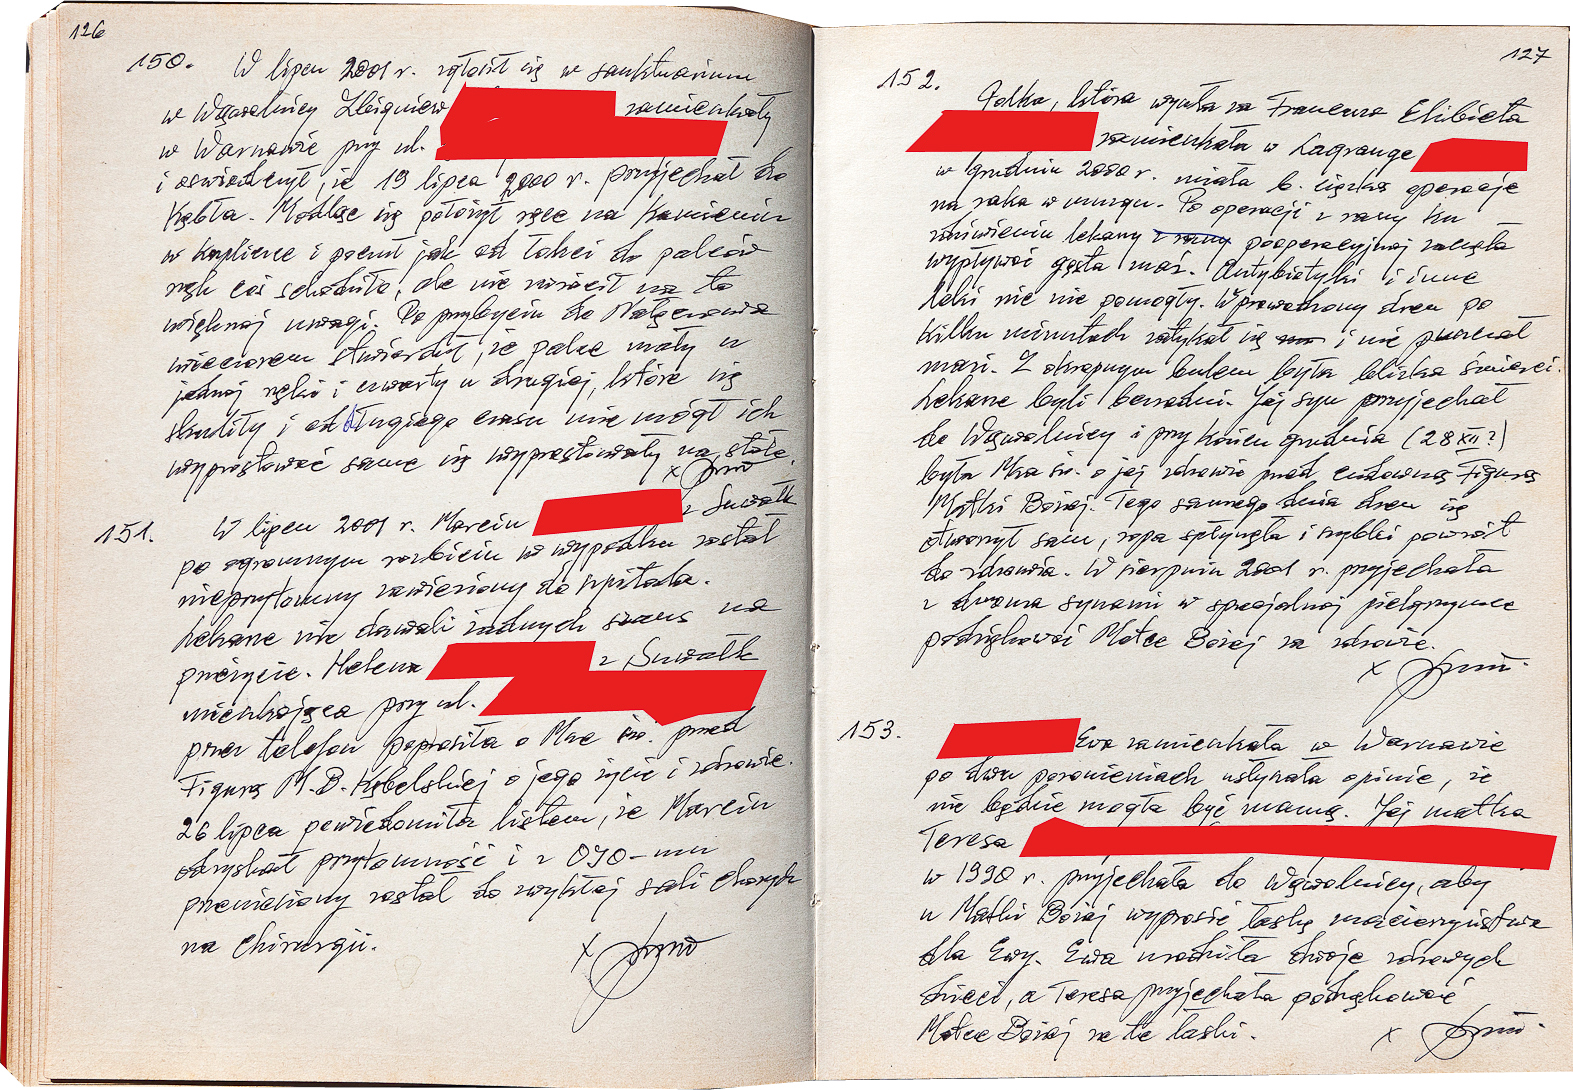 126
150. W lipcu 2001 r. zgłosił się w sanktuarium
w Wąwolnicy Zbigniew zamieszkały
w Warszawie przy ul.
i oświadczył, że 19 lipca 2000 r. przyjechał do
Kębła. Modląc się położył ręce na kamieniu
w kapliczce i poczuł jak od łokci do palców
rąk coś schodziło, ale nie zwrócił na to
większej uwagi. Po przybyciu do Nałęczowa
wieczorem stwierdził, że palec mały u
jednej ręki i czwarty u drugiej, które się
skuliły i od długiego czasu nie mógł ich
wyprostować same się wyprostowały na stole.
x
151. W lipcu 2001 r. Marcin z Suwałk
po ogromnym rozbiciu w wypadku został
nieprzytomny zawieziony do szpitala.
Lekarze nie dawali żadnych szans na
przeżycie. Helena z Suwałk
mieszkająca przy ul.
przez telefon poprosiła o Mszę św. przed
Figurą M.B. Kębelskiej o jego życie i zdrowie.
26 lipca powiedomiła listem, że Marcin
odzyskał przytomność i z OJO-mu
przeniesiony został do zwykłej sali chorych
na chirurgii.
x
127
152. Polka, która wyszła za Francuza Elżbieta
zamieszkała w Lagrange
w grudniu 2000 r. miała b. ciężką operację
na raka w mózgu. Po operacji z rany ku
zdziwieniu lekarzy z rany pooperacyjnej zaczęła
wypływać gęsta maź. Antybiotyki i inne
leki nic nie pomogły. Wprowadzony dren po
kilku minutach zatykał się i nie puszczał
mazi. Z okropnym bólem była bliska śmierci.
Lekarze byli bezradni. Jej syn przyjechał
do Wąwolnicy i przy końcu grudnia (28 XII ?)
była Msza św. o jej zdrowie przed cudowną Figurą
Matki Bożej. Tego samego dnia dren się
otworzył sam, ropa spłynęła i szybki powrót
do zdrowia. W sierpniu 2001 r. przyjechała
z dwoma synami w specjalnej pielgrzymce
podziękować Matce Bożej za zdrowie.
x
153. Ewa zamieszkała w Warszawie
po dwu poronieniach usłyszała opinie, że
nie będzie mogła być mamą. Jej matka
Teresa
w 1990 r. przyjechała do Wąwolnicy, aby
u Matki Bożej wyprosić łaskę macierzyństwa
dla Ewy. Ewa urodziła dwoje zdrowych
dzieci, a Teresa przyjechała podziękować
Matce Bożej za te łaski.
x